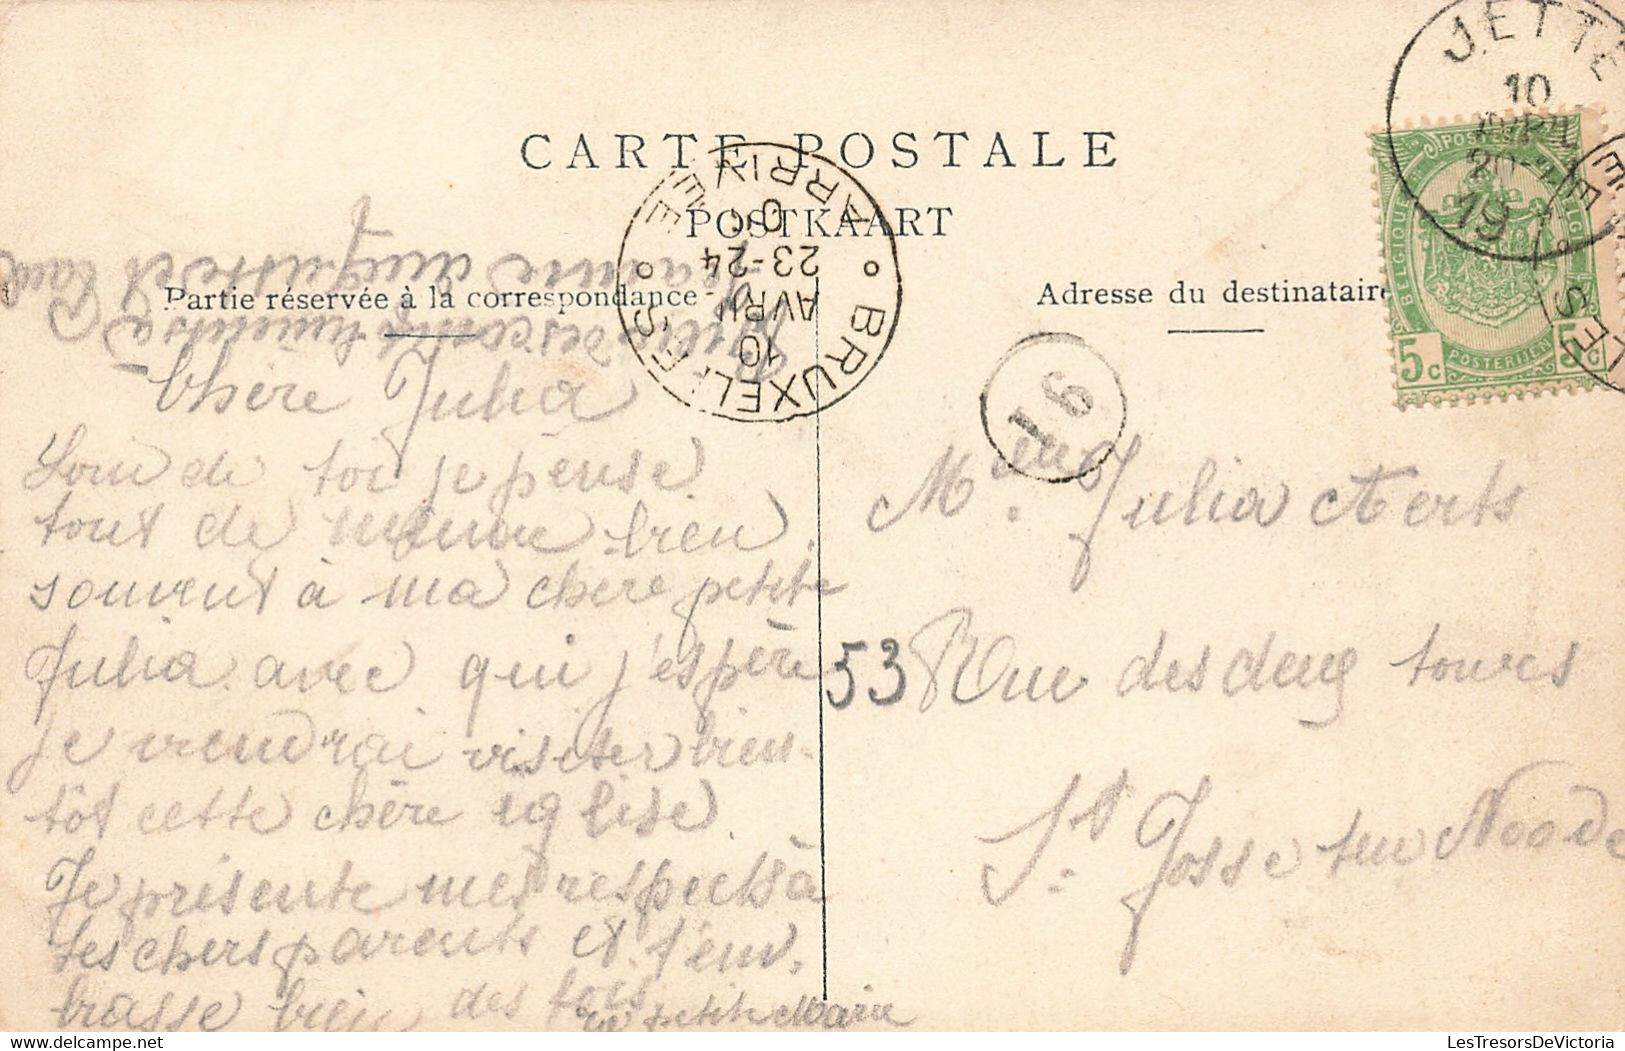 CARTE POSTALE
POSTKAART
Partie réservée à la correspondance
Adresse du destinataire
JETTE
10
AVRIL
19
BRUXELLES
ARRIVÉE
10
AVRIL
23-24
16
POSTES
BELGIQUE
BELGIË
POSTERIJEN
5c
5c
Chère Julia
Loin de toi je pense
tout de même bien
souvent à ma chère petite
Julia avec qui j'espère
je viendrai visiter bien-
tôt cette chère église
Je présente mes respects à
tes chers parents et t'em-
brasse bien des fois
ta petite Marie
Melle Julia Aerts
53 Rue des deux tours
St. Josse ten Noode
LesTresorsDeVictoria.com